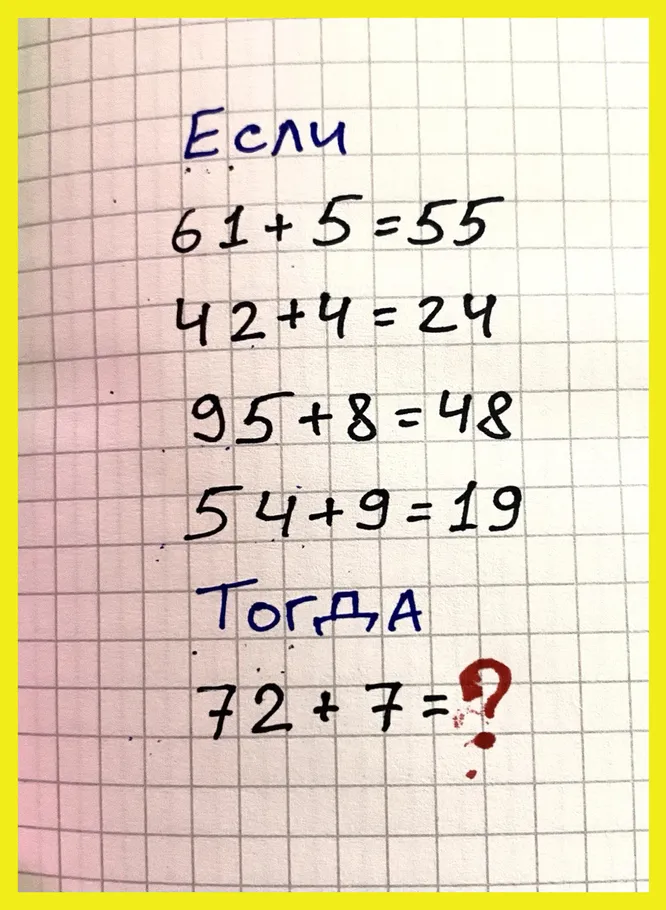 Если
61 + 5 = 55
42 + 4 = 24
95 + 8 = 48
54 + 9 = 19
Тогда
72 + 7 = ?